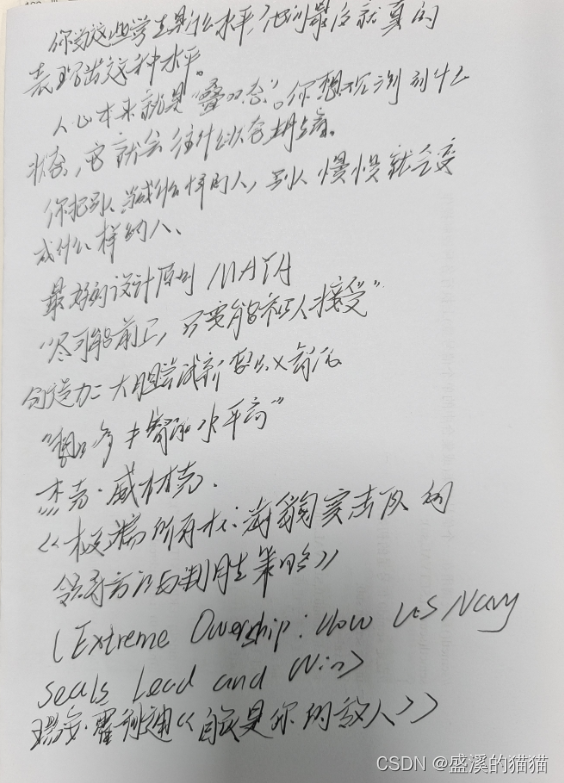 你为这些学生是什么水平,他们最后就真的
表现出这种水平。
人心本来就是“叠加态”。你想观测到什么
状态,它就会往什么状态上靠。
你把别人当成什么样的人,别人慢慢就会变
成什么样的人、
最好的设计原则 MAYA
“尽可能前卫,只要能被人接受”
创造力二大胆尝试新想法X
“想的多
杰克·威林克.
《极端所有权:海豹突击队的
领导方法与制胜策略》
(Extreme Owership: How US Navy
Seals Lead and Win>
瑞安·霍利迪《自我是你的敌人》
CSDN @盛溪的猫猫